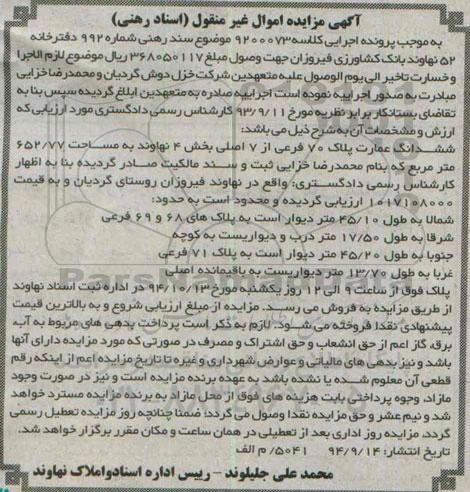 آگهی مزایده اموال غیر منقول (اسناد رهنی)
به موجب پرونده اجرایی کلاسه ۹۲۰۰۰۷۳ موضوع سند رهنی شماره ۹۹۲ دفترخانه
۵۲ نهاوند بانک کشاورزی فیروزان جهت وصول مبلغ ۳۶۸۰۵۰۱۱۷ ریال موضوع لازم الاجرا
و خسارت تاخیر الی یوم الوصول علیه متعهدین شرکت خزل دوش گردیان و محمدرضا خزایی
مبادرت به صدور اجراییه نموده است اجراییه صادره به متعهدین ابلاغ گردیده سپس بنا به
تقاضای بستانکار برابر نظریه مورخ ۹۳/۹/۱۱ کارشناس رسمی دادگستری مورد ارزیابی که
ارزش و مشخصات آن به شرح ذیل می باشد:
ششدانگ عمارت پلاک ۷۰ فرعی از ۷ اصلی بخش ۴ نهاوند به مساحت ۶۵۲/۷۷
متر مربع که بنام محمدرضا خزایی ثبت و سند مالکیت صادر گردیده بنا به اظهار
کارشناس رسمی دادگستری: واقع در نهاوند فیروزان روستای گردیان و به قیمت
۱۰۱۷۱۰۸۰۰۰ ارزیابی گردیده و محدود است به حدود:
شمالا به طول ۴۵/۱۰ متر دیوار است به پلاک های ۶۸ و ۶۹ فرعی
شرقا به طول ۱۷/۵۰ متر درب و دیواریست به کوچه
جنوبا به طول ۴۵/۲۰ متر دیوار است به پلاک ۷۱ فرعی
غربا به طول ۱۳/۷۰ متر دیواریست به باقیمانده اصلی
پلاک فوق از ساعت ۹ الی ۱۲ روز یکشنبه مورخ ۹۴/۱۰/۱۳ در اداره ثبت اسناد نهاوند
از طریق مزایده به فروش می رسید. مزایده از مبلغ ارزیابی شروع و به بالاترین قیمت
پیشنهادی نقدا فروخته می شود. لازم به ذکر است پرداخت بدهی های مربوط به آب،
برق، گاز اعم از حق انشعاب و حق اشتراک و مصرف در صورتی که مورد مزایده دارای آنها
باشد و نیز بدهی های مالیاتی و عوارض شهرداری و غیره تا تاریخ مزایده اعم از اینکه رقم
قطعی آن معلوم شده یا نشده باشد به عهده برنده مزایده است و نیز در صورت وجود
مازاد، وجوه پرداختی بابت هزینه های فوق از محل مازاد به برنده مزایده مسترد خواهد
شد و نیم عشر و حق مزایده نقدا وصول می گردد: ضمنا چنانچه روز مزایده تعطیل رسمی
گردد، مزایده روز اداری بعد از تعطیلی در همان ساعت و مکان مقرر برگزار خواهد شد.
تاریخ انتشار: ۹۴/۹/۱۴ ۵۰۴۱/ م الف
محمد علی جلیلوند - رییس اداره اسناد و املاک نهاوند